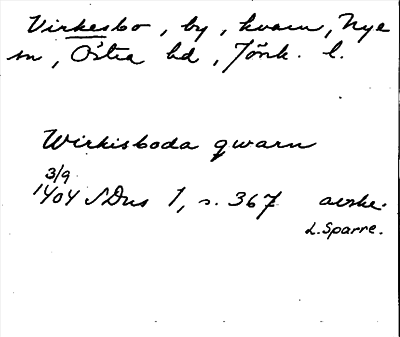 Virkesbo, by, kvarn, Nye
sn, Östra hd, Jönk. l.
Wirkisboda qwarn
3/9
1404 SDns 1, s. 367 avskr.
L. Sparre.